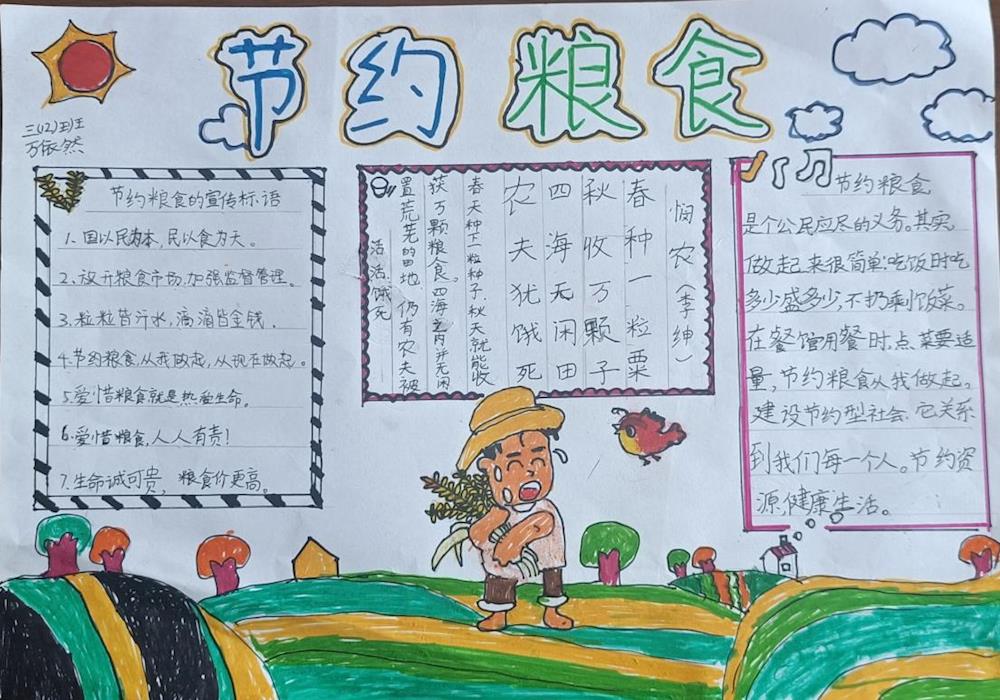 节约粮食
三(12)班
万依然
节约粮食的宣传标语
1. 国以民为本,民以食为天。
2. 放开粮食市场,加强监督管理。
3. 粒粒皆汗水,滴滴皆金钱.
4. 节约粮食,从我做起,从现在做起。
5. 爱惜粮食就是热爱生命。
6. 爱惜粮食,人人有责!
7. 生命诚可贵,粮食价更高。
悯农(李绅)
春种一粒粟
秋收万颗子
四海无闲田
农夫犹饿死
春天种下一粒种子,秋天就能收
获万颗粮食。四海之内并无闲
置荒芜的田地,仍有农夫被
活活饿死
节约粮食
是个公民应尽的义务。其实,
做起来很简单:吃饭时吃
多少盛多少,不扔剩饭菜。
在餐馆用餐时,点菜要适
量,节约粮食从我做起。
建设节约型社会,它关系
到我们每一个人。节约资
源,健康生活。